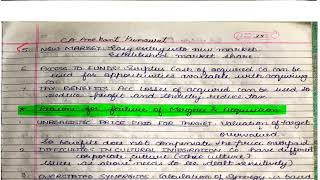 CA Anekant Purawat
5. NEW MARKET: Easy entry into new market
Established market share
6. ACCESS TO FUNDS: Surplus cash of acquired co can be
used for opportunities available with acquiring
7. TAX BENEFITS: Acc losses of acquired can be used to
reduce profit and thereby reduce tax
* Reasons for failure of Mergers & Acquisition
UNREALISTIC PRICE PAID FOR TARGET: Valuation of target
overvalued
So benefits does not compensate the price overpaid
2. DIFFICULTIES IN CULTURAL INTEGRATION: Co have different
corporate culture
issues
need to be dealt sensitively)
3. OVERSTATED SYNERGIES: Calculation of Synergy is based